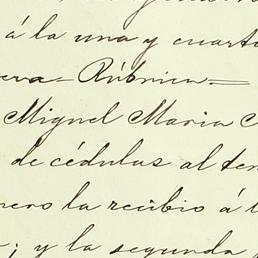 á la una y cuart
era - Rúbrica.
Miguel Maria
de cédulas al ten
nero la recibio á l
; y la segunda